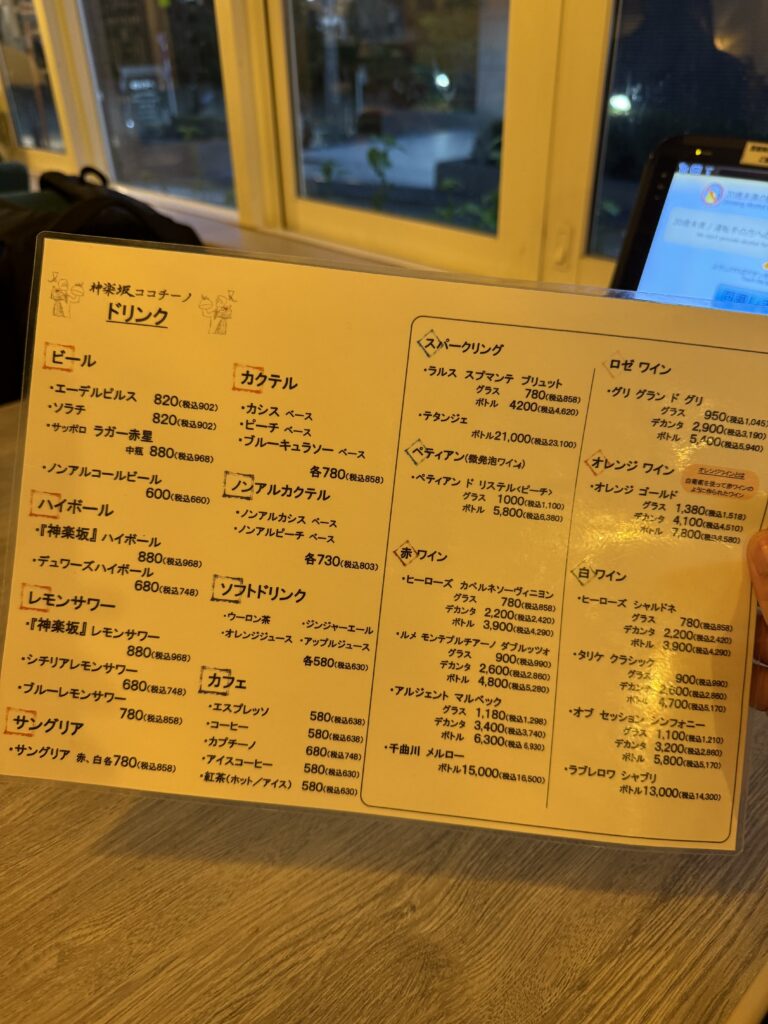 神楽坂 ココチーノ
ドリンク
ビール
・エーデルピルス 820(税込902)
・ソラチ 820(税込902)
・サッポロ ラガー赤星
中瓶 880(税込968)
・ノンアルコールビール
600(税込660)
ハイボール
・『神楽坂』ハイボール
880(税込968)
・デュワーズハイボール
680(税込748)
レモンサワー
・『神楽坂』レモンサワー
880(税込968)
・シチリアレモンサワー
680(税込748)
・ブルーレモンサワー
780(税込858)
サングリア
・サングリア 赤、白各780(税込858)
カクテル
・カシス ベース
・ピーチ ベース
・ブルーキュラソー ベース
各780(税込858)
ノンアルカクテル
・ノンアルカシス ベース
・ノンアルピーチ ベース
各730(税込803)
ソフトドリンク
・ウーロン茶 ・ジンジャーエール
・オレンジジュース ・アップルジュース
各580(税込630)
カフェ
・エスプレッソ 580(税込638)
・コーヒー 580(税込638)
・カプチーノ 680(税込748)
・アイスコーヒー 580(税込630)
・紅茶(ホット/アイス) 580(税込630)
スパークリング
・ラルス スプマンテ ブリュット
グラス 780(税込858)
ボトル 4200(税込4,620)
・テタンジェ
ボトル21,000(税込23,100)
ペティアン(微発泡ワイン)
・ペティアン ド リステル<ピーチ>
グラス 1000(税込1,100)
ボトル 5,800(税込6,380)
赤 ワイン
・ヒーローズ カベルネソーヴィニヨン
グラス 780(税込858)
デカンタ 2,200(税込2,420)
ボトル 3,900(税込4,290)
・ルメ モンテプルチアーノ ダブルッツォ
グラス 900(税込990)
デカンタ 2,600(税込2,860)
ボトル 4,800(税込5,280)
・アルジェント マルベック
グラス 1,180(税込1,298)
デカンタ 3,400(税込3,740)
ボトル 6,300(税込6,930)
・千曲川 メルロー
ボトル15,000(税込16,500)
ロゼ ワイン
・グリ グラン ド グリ
グラス 950(税込1,045)
デカンタ 2,900(税込3,190)
ボトル 5,400(税込5,940)
オレンジ ワイン
オレンジワインとは
白葡萄を使って赤ワインの
ように作られたワイン
・オレンジ ゴールド
グラス 1,380(税込1,518)
デカンタ 4,100(税込4,510)
ボトル 7,800(税込8,580)
白 ワイン
・ヒーローズ シャルドネ
グラス 780(税込858)
デカンタ 2,200(税込2,420)
ボトル 3,900(税込4,290)
・タリケ クラシック
グラス 900(税込990)
デカンタ 2,600(税込2,860)
ボトル 4,700(税込5,170)
・オブ セッション シンフォニー
グラス 1,100(税込1,210)
デカンタ 3,200(税込2,860)
ボトル 5,800(税込5,170)
・ラブレロワ シャブリ
ボトル 13,000(税込14,300)